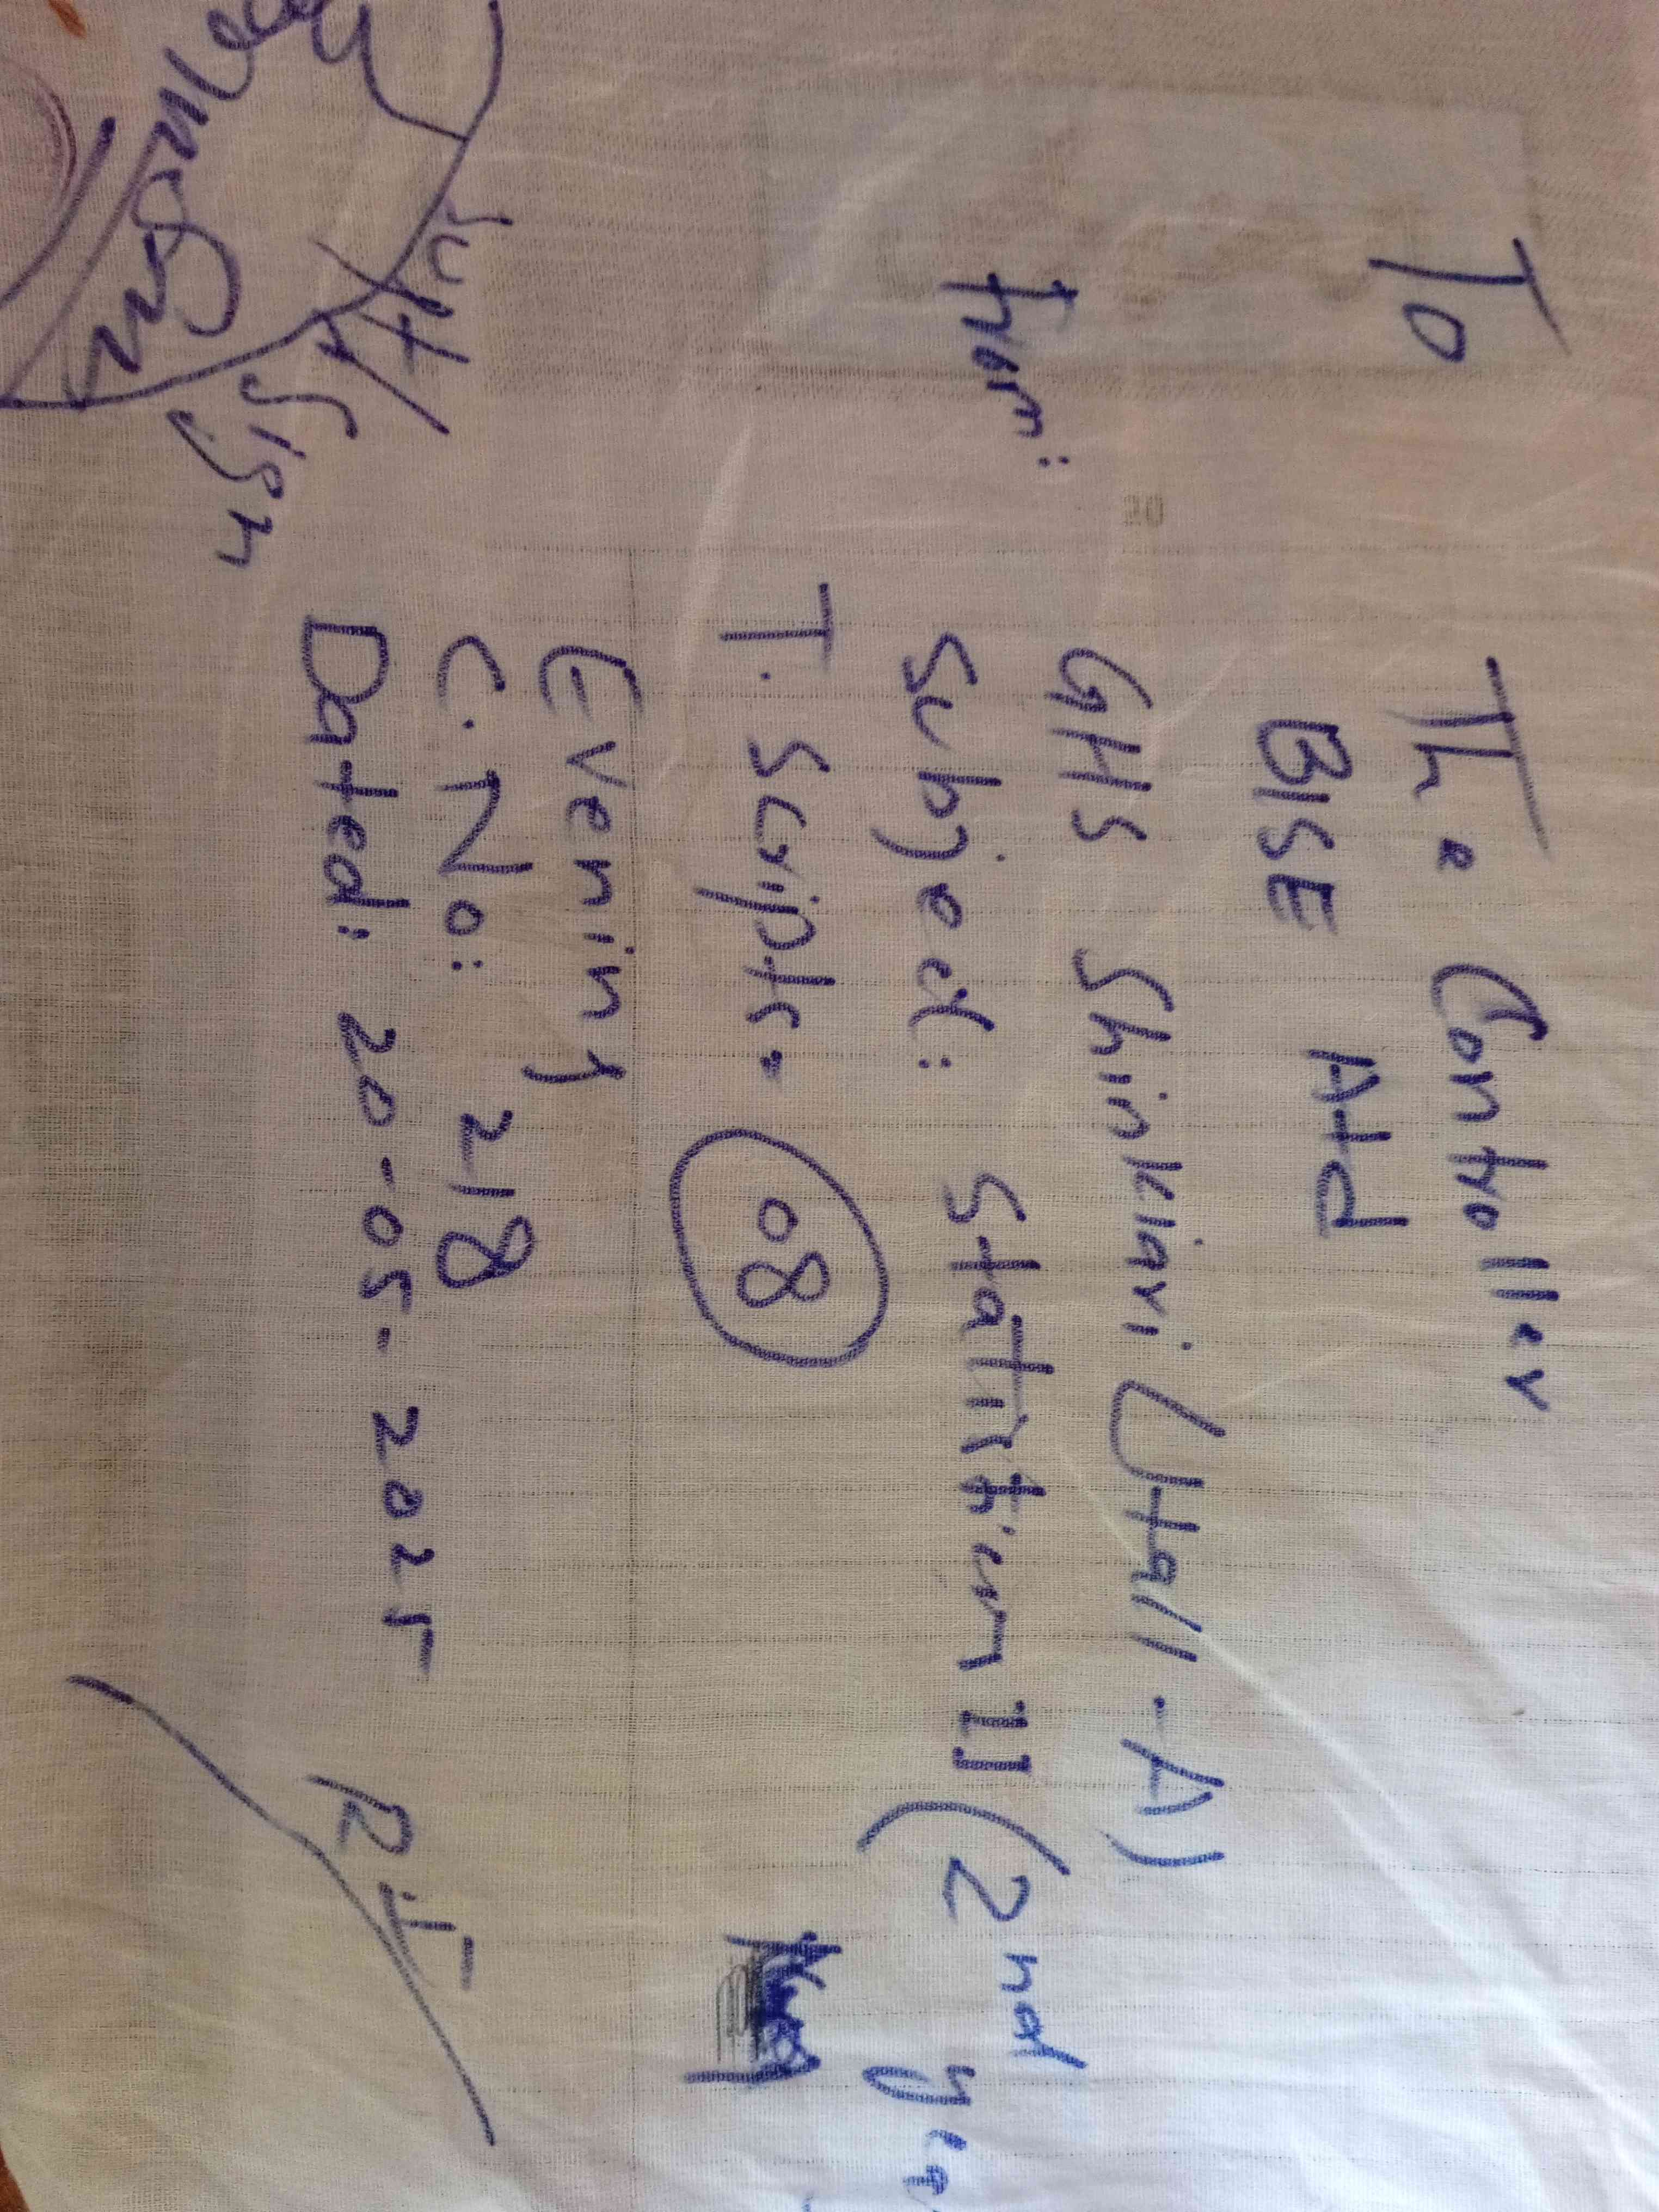 To
The Controller
BISE Atd
From:
GHS Shinkiari (Hall-A)
Subject: Statistics II (2nd year
T. Scripts. 08
Evening
C.No: 218
Dated: 20-05-2025
Sign